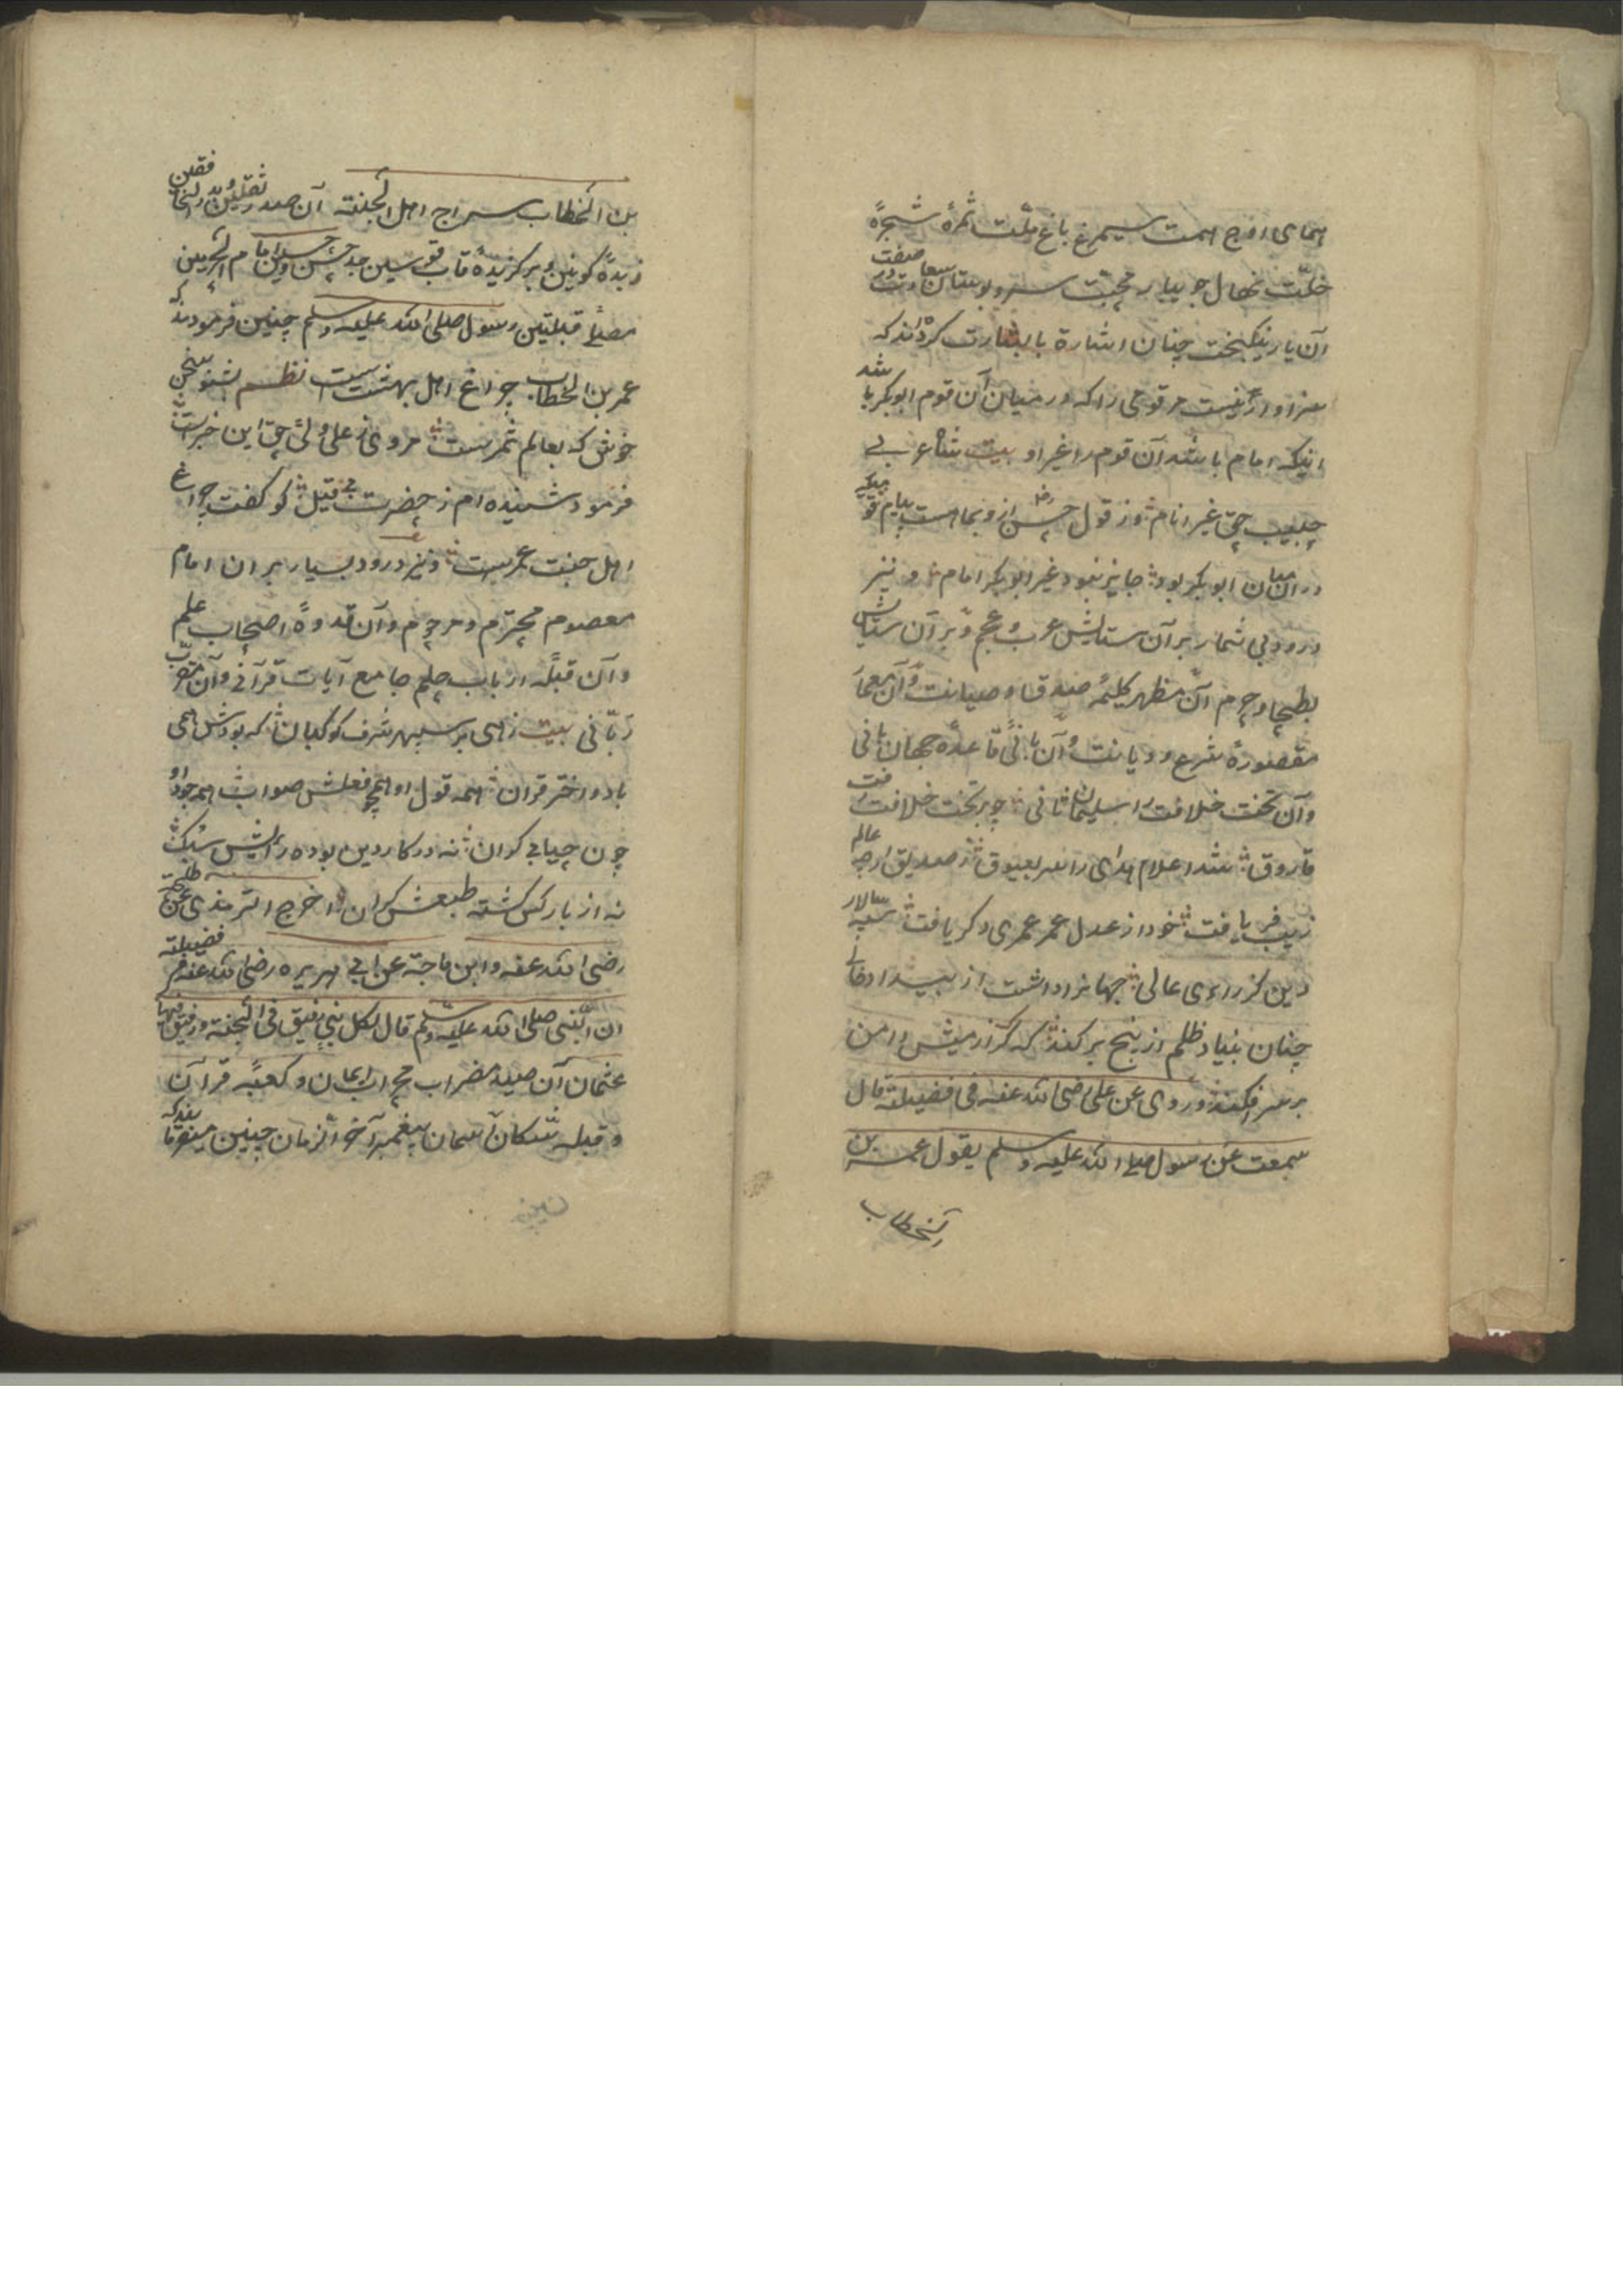 همای اوج همت سیمرغ باغ ملّت ثمرهٔ شجرهٔ
خلّت نهال جویبار محبّت سرو بوستان سعادت صفت در
آن یار نیکبخت چنان اشارة بابشارت کرده‌اند که
سزاوار نیست مر قومی را که در میان آن قوم ابوبکر باشد
اینکه امام باشد آن قوم را غیر او بیت شاعر
حبیب حق غیر انام و ز قول حسن از و بما است پیام قومیکه
در ان میان ابوبکر بود جایز نبود غیر ابوبکر امام و نیز
درود بی شمار بر آن ستایش عرب و عجم و بر آن ستایش
بطحا و حرم آن مظهر کلیمهٔ صدق و صیانت و آن معمار
مقصورهٔ شرع و دیانت و آن بانی قاعدهٔ جهان بانی
وآن تخت خلافت را سلیمان ثانی چو بر تخت خلافت رفت
فاروق شد اعلام هدای را سر بعیوق ز صدیق ارچه عالم
زیب فر یافت خود از عدل عمر عمری دکر یافت سپه سالار
دین کز راءی عالی جهانرا داشت از بیداد خالی
چنان بنیاد ظلم از بیخ برکند که کرک از میش دامن
بر سر افکند و روی عن علی رضی الله عنه فی فضیلته قال
سمعت عن رسول صلی الله علیه وسلم یقول عمر بن
الخطاب
بن الخطاب سراج اهل الجنته آن صدر ثقلین و بدر الخافقین
زبدهٔ کونین و برکزیدهٔ قاب قوسین جد حسن و حسین امام الحرمین
مصلّے قبلتین رسول صلی الله علیه وسلم چنین فرمودند که
عمر بن الخطاب چراغ اهل بهشت است نظم بشنو سخن
خوش که بعالم ثمر ست مروی ز علی ولیّ حق این خبرست
فرمود شنیده ام ز حضرت فی قیل کو کفت چراغ
اهل جنت عمر ست و نیز درود بسیار بر ان امام
معصوم محترم و مرحوم و آن قدوهٔ اصحاب علم
و آن قبلهٔ ارباب حلم جامع آیات قرآنی و آن مقرب
ربّانی بیت زهی بر سپهر شرف کو کبان که بودش همی
با دو اختر قران همه قول او همچو فعلش صواب همه جود او
چون حیای کران نه در کار دین بوده رائیش سبک
نه از بار کس کشته طبعش کران اخرج الترمذی عن طلحة
رضی الله عنه و ابن ماجة عن ابی هریره رضی الله عنه فی فضیلته
ان النّبی صلی الله علیه وسلم قال لکل نبی رفیق فی الجنة و رفیقی فیها
عثمان آن صید مضراب محراب ایمان و کعبهٔ قرآن
و قبلهٔ سکان آسمان پیغمبر آخر الزمان چنین میفرمایند که